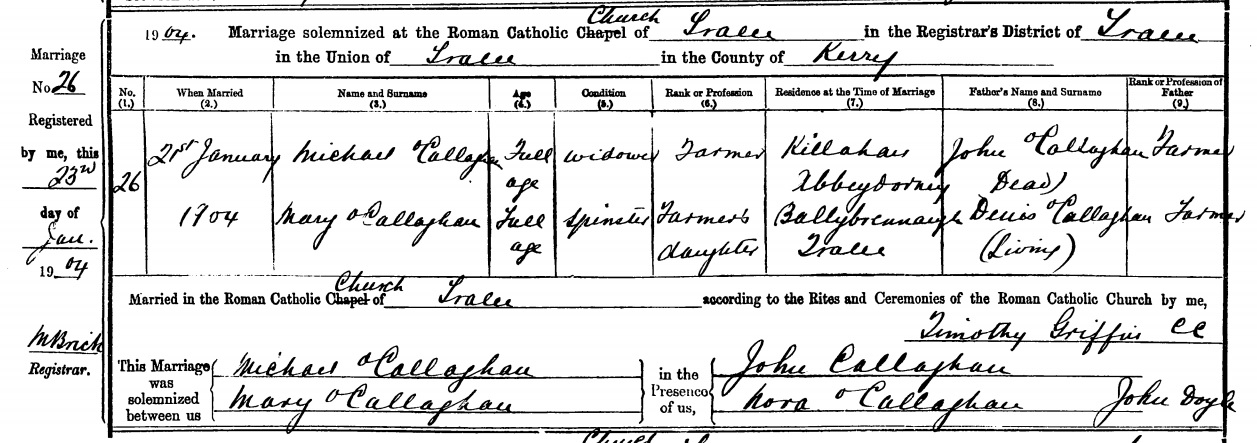 1904. Marriage solemnized at the Roman Catholic Chapel Church of Tralee in the Registrar's District of Tralee
in the Union of Tralee in the County of Kerry
Marriage
No. 26
Registered
by me, this
23rd
day of
Jan.
1904
M Brick
Registrar.
No. (1.) When Married (2.) Name and Surname (3.) Age (4.) Condition (5.) Rank or Profession (6.) Residence at the Time of Marriage (7.) Father's Name and Surname (8.) Rank or Profession of Father (9.)
26 21st January Michael O'Callaghan Full widower Farmer Killahan John O'Callaghan Farmer
age Abbeydorney Dead)
1904 Mary O'Callaghan Full spinster Farmer's Ballybrennaugh Denis O'Callaghan Farmer
age daughter Tralee (Living)
Married in the Roman Catholic Chapel Church of Tralee according to the Rites and Ceremonies of the Roman Catholic Church by me,
Timothy Griffin CC
This Marriage was solemnized between us
Michael O'Callaghan
Mary O'Callaghan
in the Presence of us,
John Callaghan
Nora O'Callaghan John Doyle